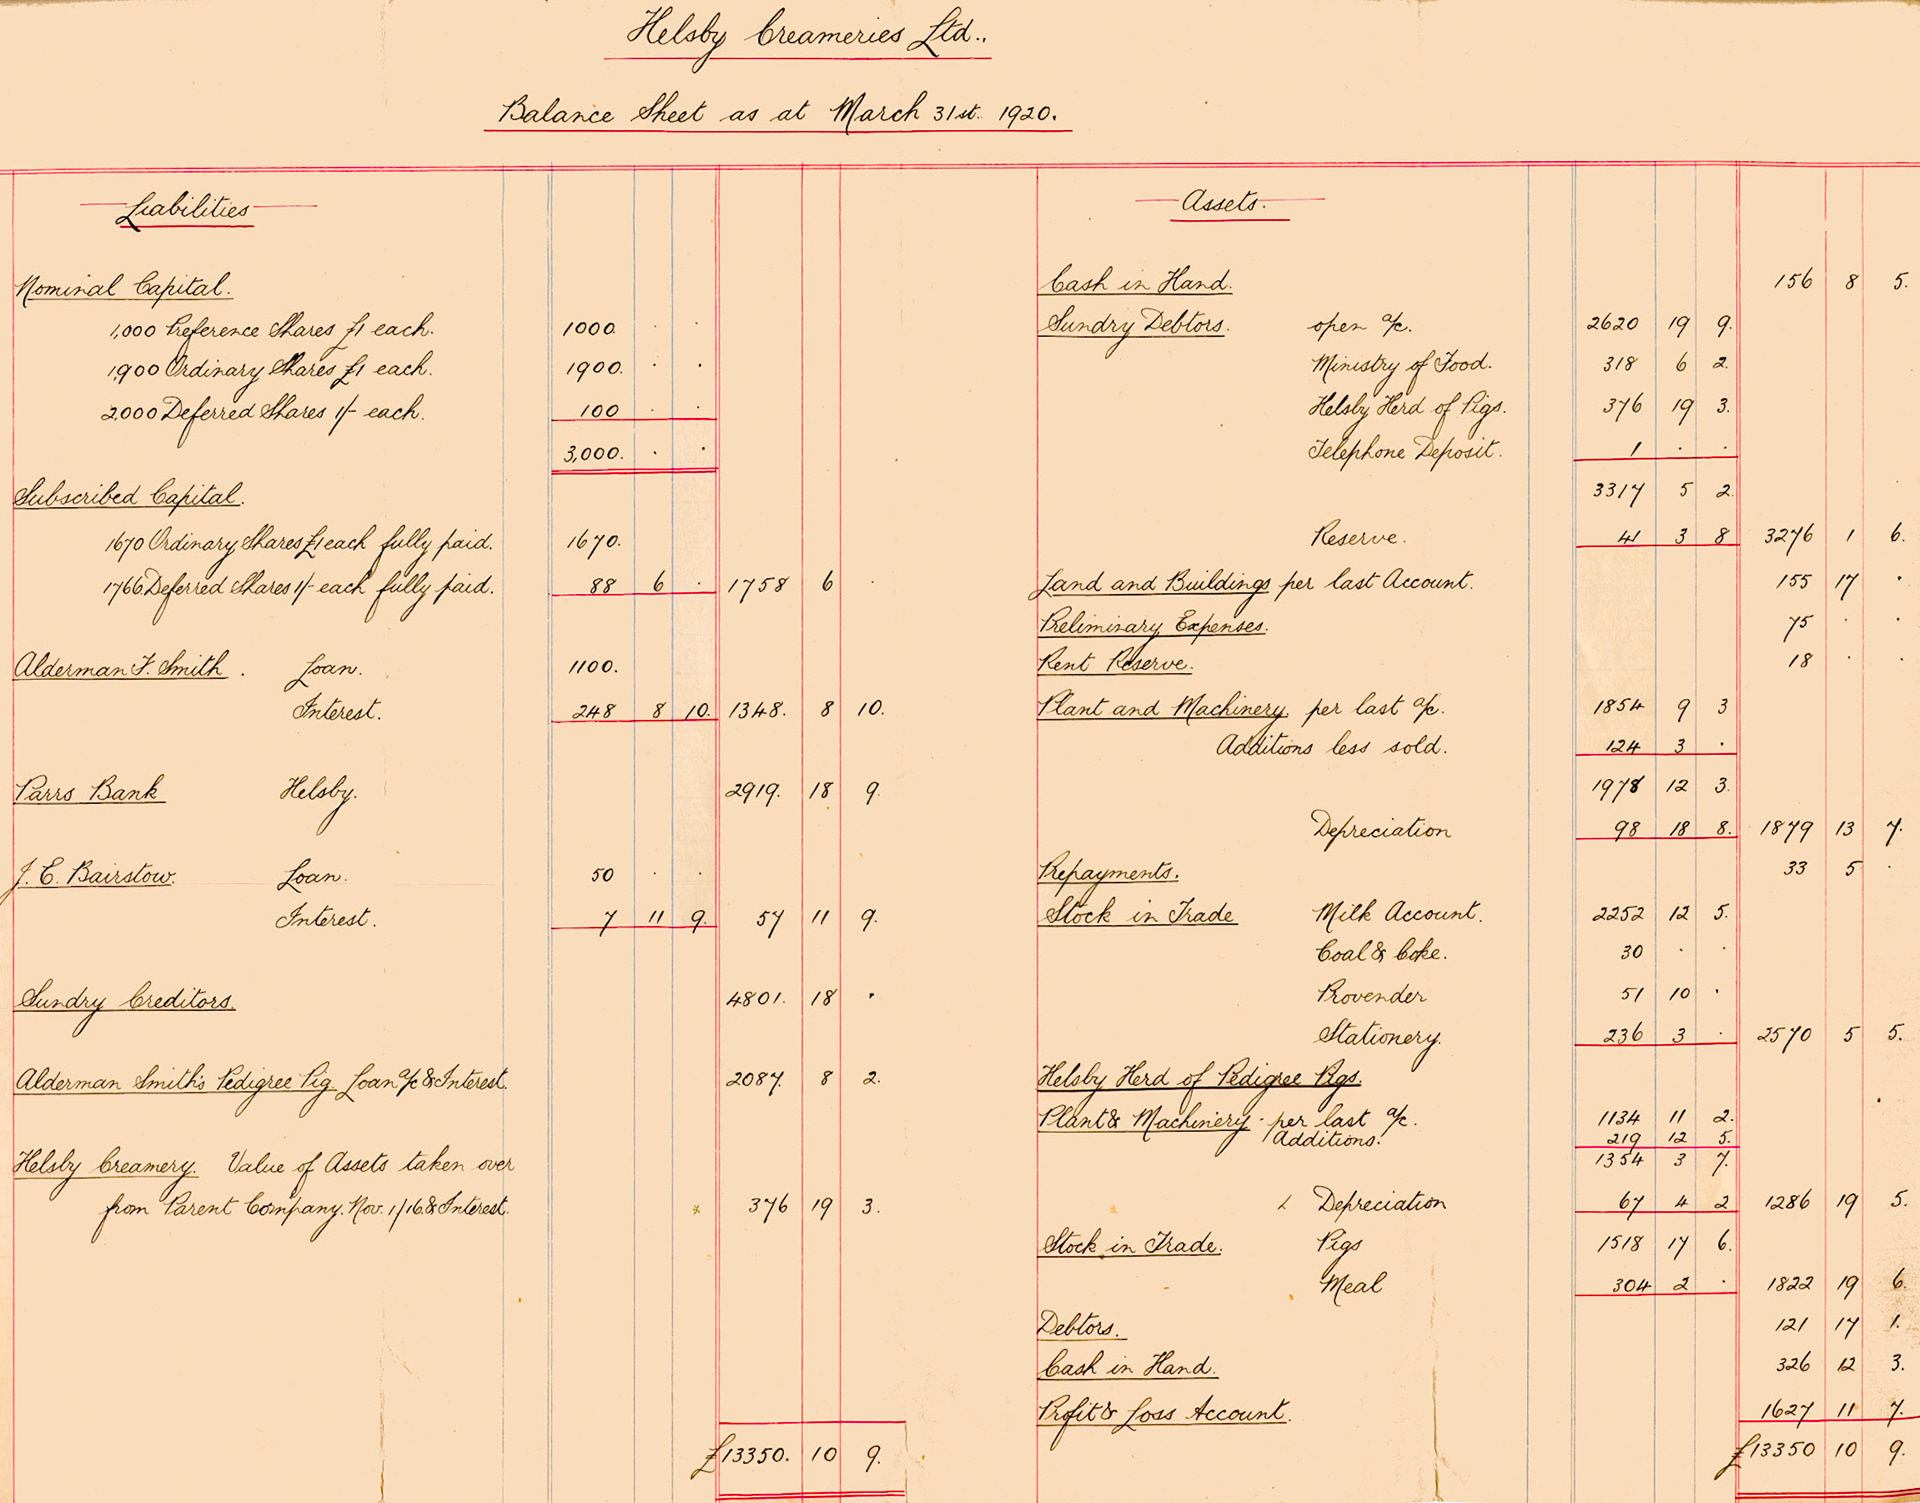 Helsby Creameries Ltd.,
Balance Sheet as at March 31st. 1920.
Liabilities
Nominal Capital.
1,000 Preference Shares £1 each. 1000 . .
1,900 Ordinary Shares £1 each. 1900. . .
2,000 Deferred Shares 1/- each. 100 . .
3,000. . .
Subscribed Capital.
1670 Ordinary Shares £1 each fully paid. 1670.
1766 Deferred Shares 1/- each fully paid. 88 6 . 1758 6 .
Alderman F. Smith. Loan. 1100.
Interest. 248 8 10. 1348. 8 10.
Parrs Bank Helsby. 2919. 18 9.
J. E. Bairstow. Loan. 50 . .
Interest. 7 11 9. 57 11 9.
Sundry Creditors. 4801. 18 .
Alderman Smith's Pedigree Pig Loan a/c & Interest. 2087. 8 2.
Helsby Creamery. Value of Assets taken over
from Parent Company. Nov. 1/16 & Interest. 376 19 3.
£13350. 10 9.
Assets.
Cash in Hand. 156 8 5.
Sundry Debtors. open a/c. 2620 19 9.
Ministry of Food. 318 6 2.
Helsby Herd of Pigs. 376 19 3.
Telephone Deposit. 1 . .
3317 5 2.
Reserve. 41 3 8 3276 1 6.
Land and Buildings per last Account. 155 17 .
Preliminary Expenses. 75 . .
Rent Reserve. 18 . .
Plant and Machinery. per last a/c. 1854 9 3
Additions less sold. 124 3 .
1978 12 3.
Depreciation 98 18 8. 1879 13 7.
Prepayments. 33 5 .
Stock in Trade Milk Account. 2252 12 5.
Coal & Coke. 30 . .
Provender 51 10 .
Stationery. 236 3 . 2570 5 5.
Helsby Herd of Pedigree Pigs.
Plant & Machinery - per last a/c. 1134 11 2.
Additions. 219 12 5.
1354 3 7.
Depreciation 67 4 2 1286 19 5.
Stock in Trade. Pigs 1518 17 6.
Meal 304 2 . 1822 19 6.
Debtors. 121 17 1.
Cash in Hand. 326 12 3.
Profit & Loss Account. 1627 11 7.
£13350 10 9.